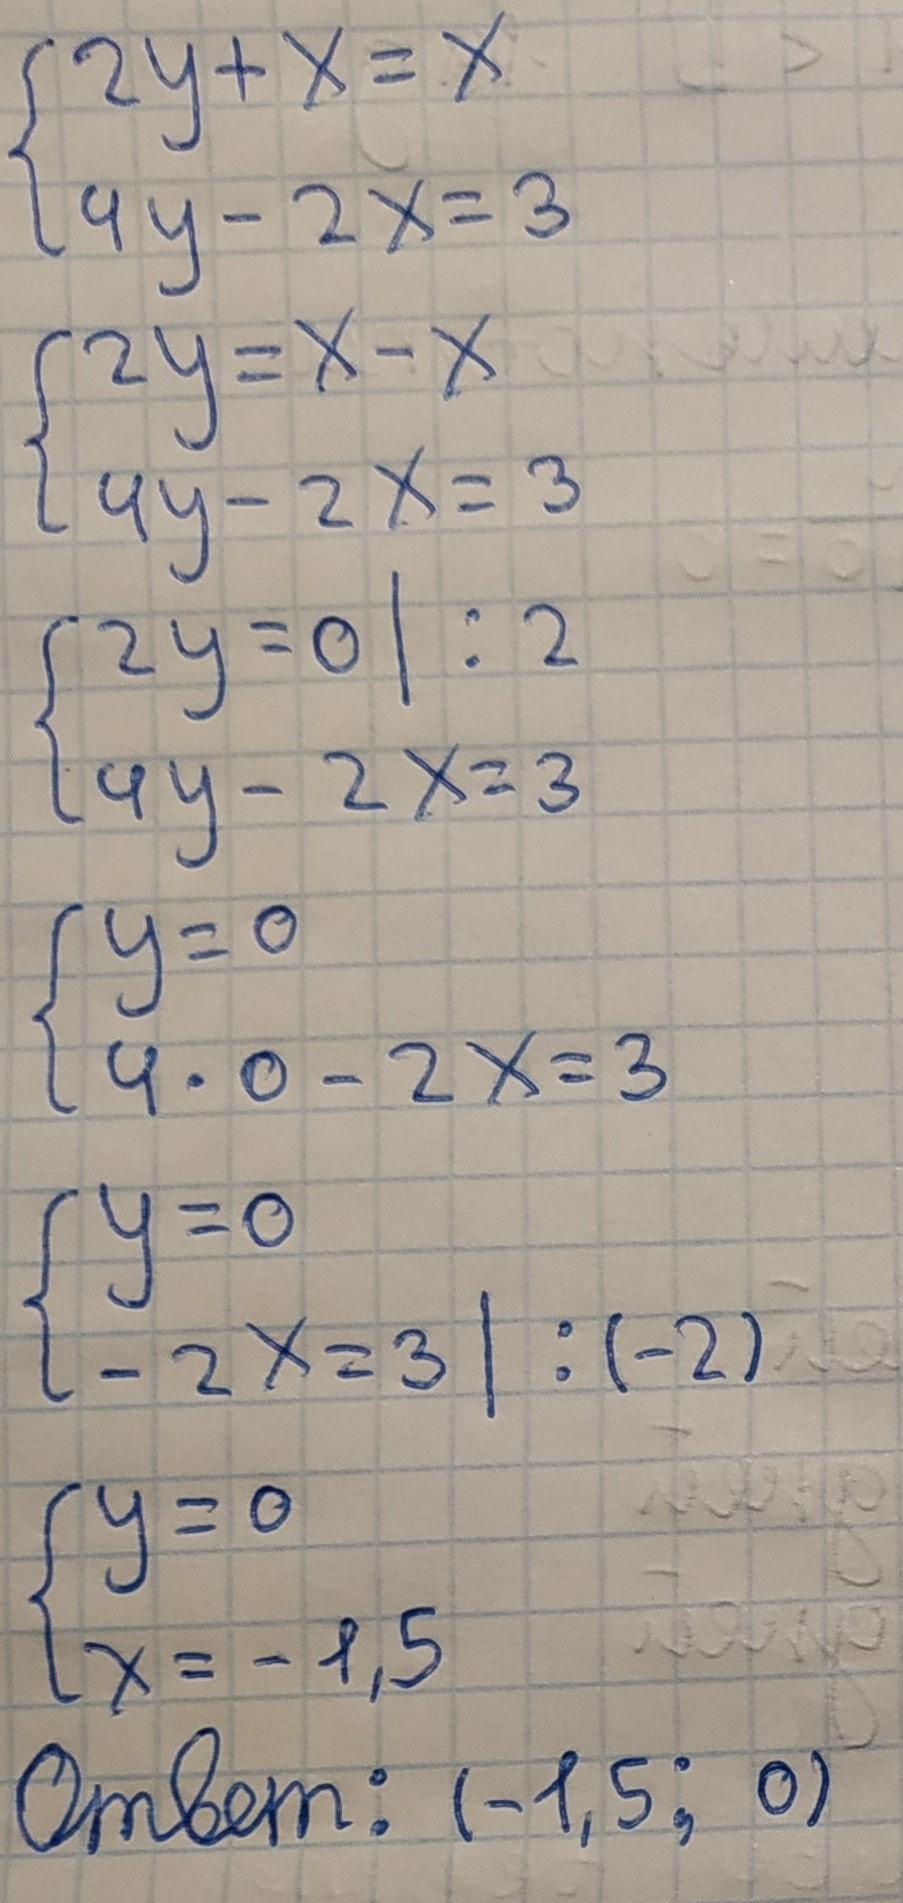 2y+x=x
4y-2x=3
2y=x-x
4y-2x=3
2y=0|:2
4y-2x=3
y=0
4·0-2x=3
y=0
-2x=3|:(-2)
y=0
x=-1,5
Ответ: (-1,5; 0)